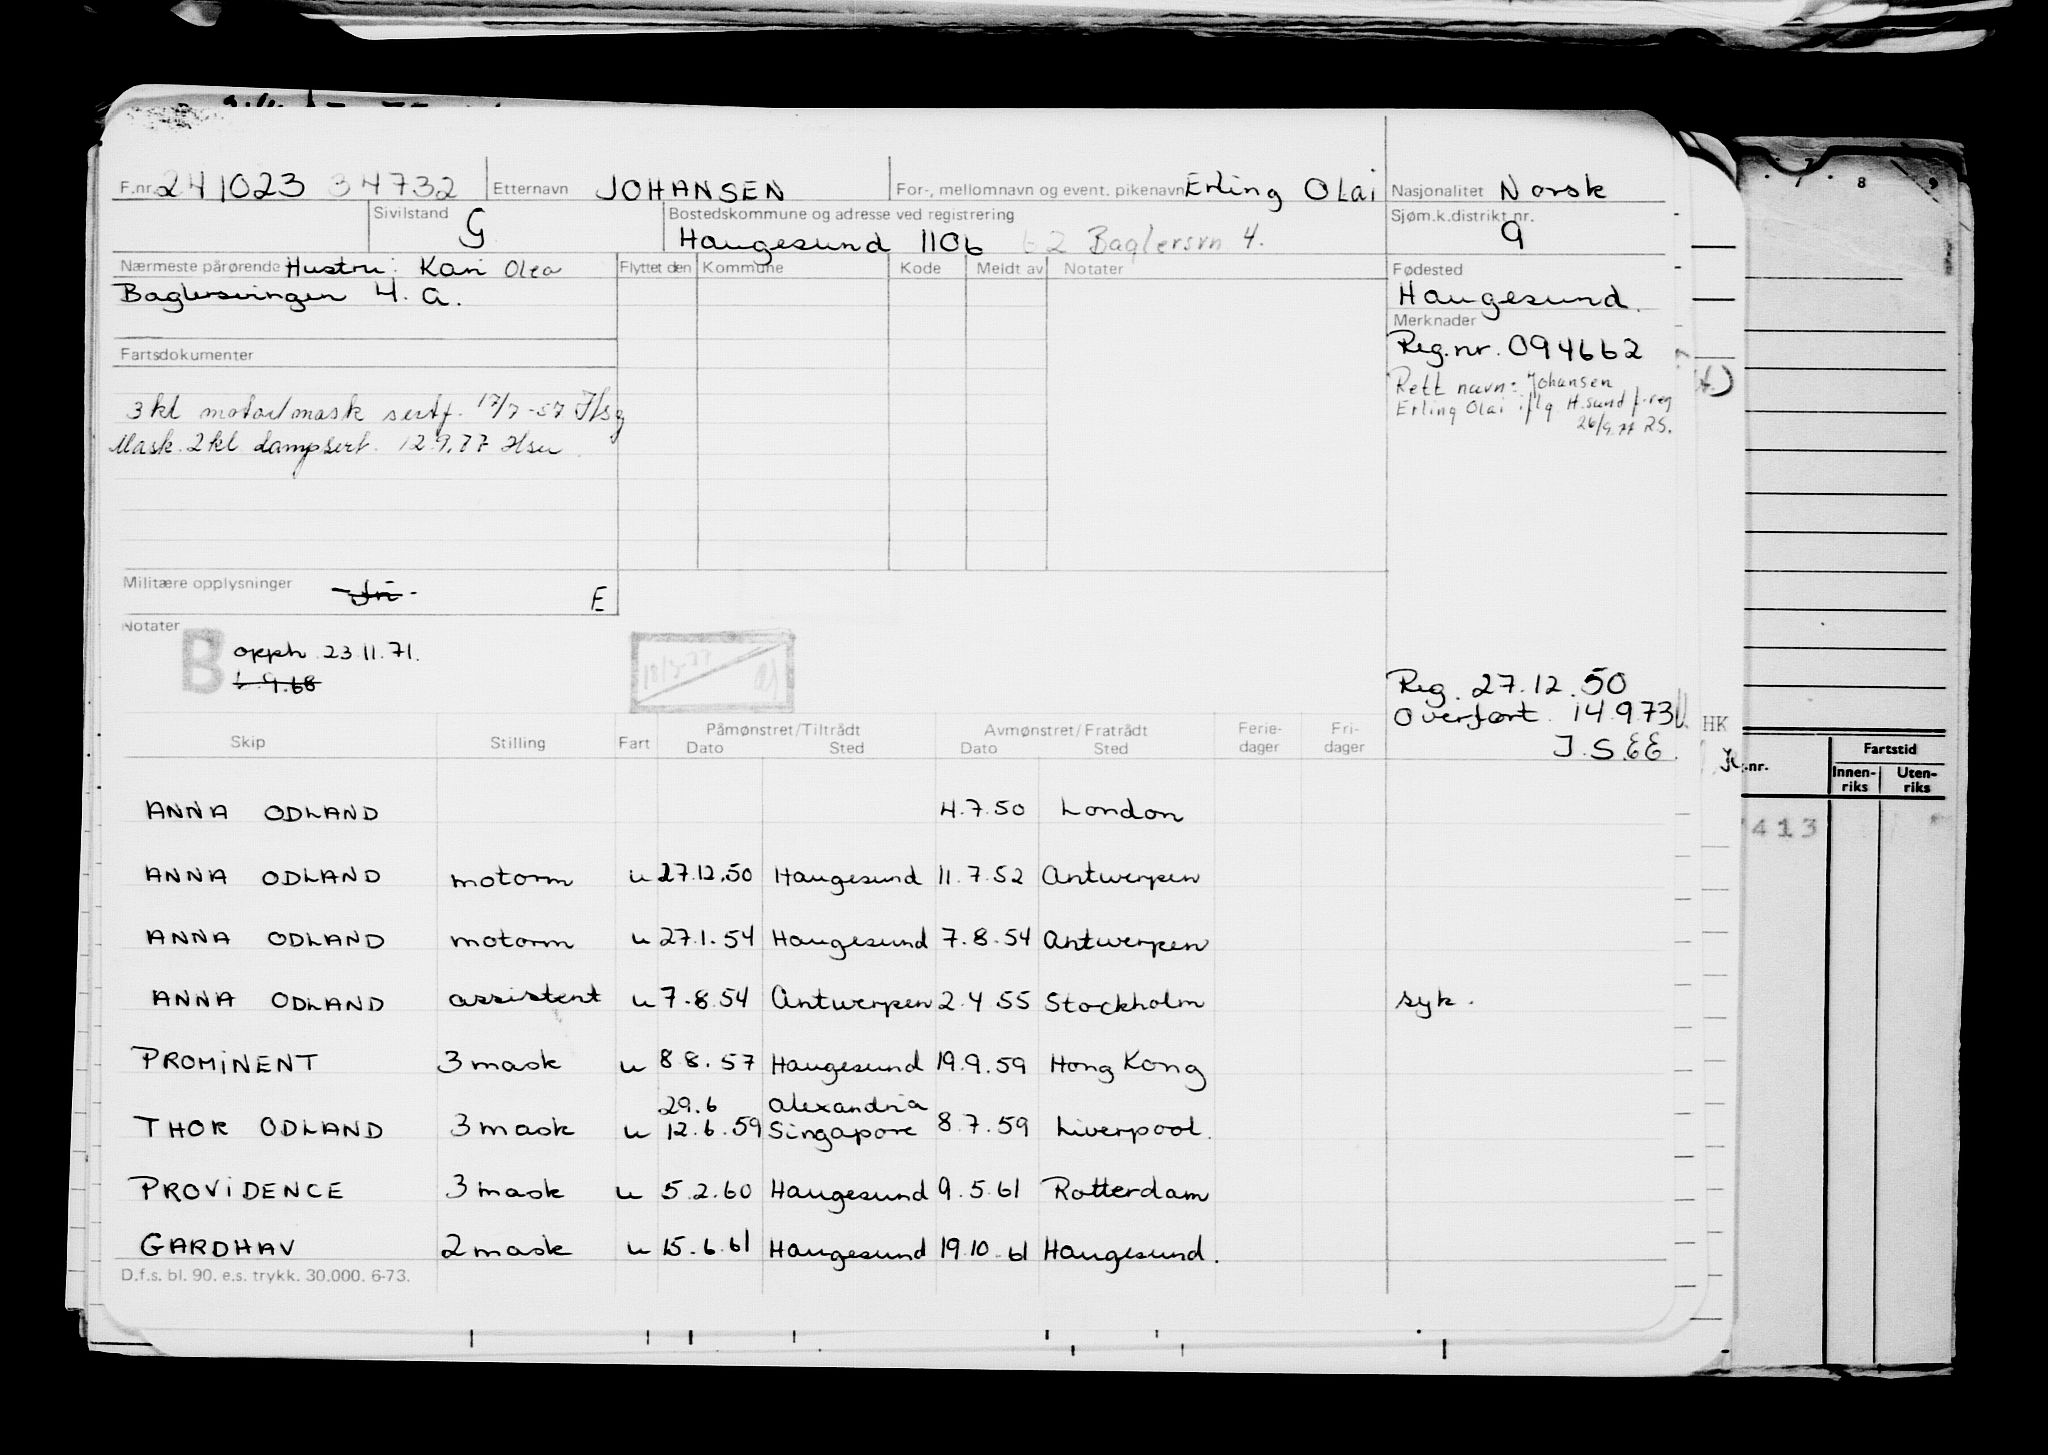 F.nr. 241023 34732 Etternavn JOHANSEN For-, mellomnavn og event. pikenavn Erling Olai Nasjonalitet Norsk
Sivilstand G Bostedskommune og adresse ved registrering Sjøm.k.distrikt nr. 9
Haugesund 1106 Baglersvn 4.
Nærmeste pårørende Hustru: Kari Olea Flyttet den Kommune Kode Meldt av Notater Fødested
Baglersvingen 4. a. Haugesund.
Merknader
Reg.nr. 094662
Fartsdokumenter
Rett navn: Johansen
Erling Olai iflg. H.sund f.reg
26/9.77 RS.
3 kl motor/mask sertf. 17/7-57
Mask. 2kl dampsert. 12.9.77
Militære opplysninger E
Notater
B opph 23.11.71.
9.68
Reg. 27.12.50
Overført 14.9.73
Skip Stilling Fart Påmønstret/Tiltrådt Dato Sted Avmønstret/Fratrådt Dato Sted Ferie-dager Fri-dager
J.S.EE.
ANNA ODLAND 4.7.50 London
ANNA ODLAND motorm u 27.12.50 Haugesund 11.7.52 Antwerpen
ANNA ODLAND motorm u 27.1.54 Haugesund 7.8.54 Antwerpen
ANNA ODLAND assistent u 7.8.54 Antwerpen 2.4.55 Stockholm syk.
PROMINENT 3 mask u 8.8.57 Haugesund 19.9.59 Hong Kong
29.6 Alexandria
THOR ODLAND 3 mask u 12.6.59 Singapore 8.7.59 Liverpool.
PROVIDENCE 3 mask u 5.2.60 Haugesund 9.5.61 Rotterdam
GARDHAV 2 mask u 15.6.61 Haugesund 19.10.61 Haugesund.
D.f.s. bl. 90. e.s. trykk. 30.000. 6-73.
7 8 9
HK
.nr. Fartstid
Innen-riks Uten-riks
413